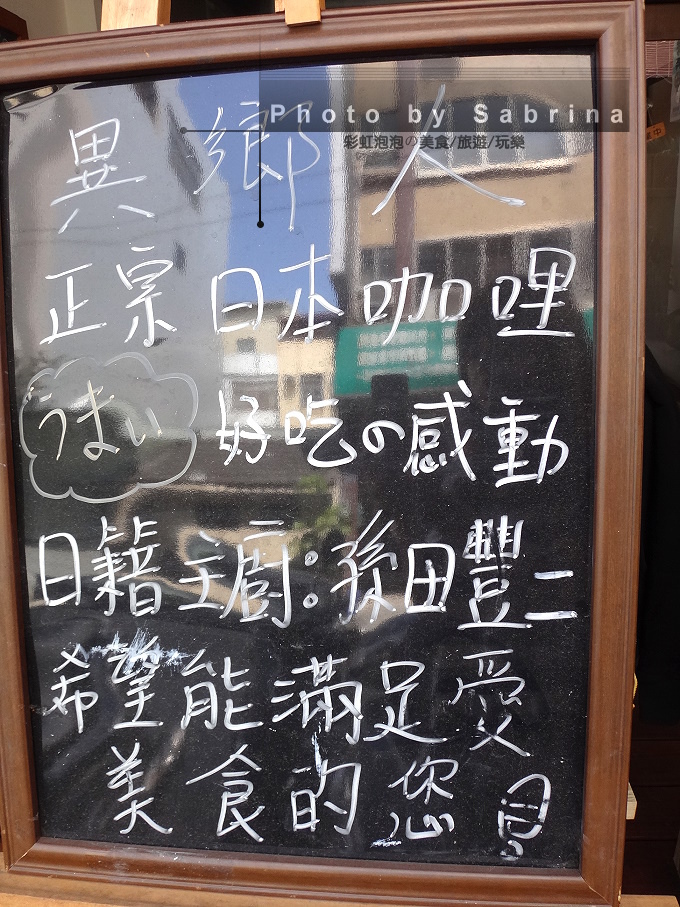 Photo by Sabrina
彩虹泡泡の美食/旅遊/玩樂
異鄉人
正宗日本咖哩
うまい 好吃の感動
日籍主廚:孫田豐二
希望能滿足愛
美食的您